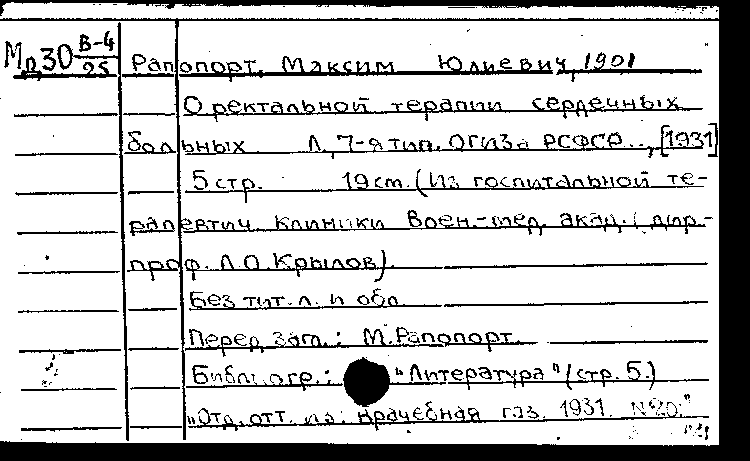 Мд30 В-4/25 Рапопорт, Максим Юлиевич, 1901
О ректальной терапии сердечных
больных Л, 7-я тип. ОГИЗа РСФСР..., [1931]
5 стр. 19 cm. (Из госпитальной те-
рапевтич. клиники Воен.-мед. акад. (дир.-
проф. Л.О. Крылов).
Без тит. л. и обл.
Перед заг.: М. Рапопорт.
Библиогр.: "Литература" (стр. 5.)
"Отд. отт. из: Врачебная газ. 1931. №20."